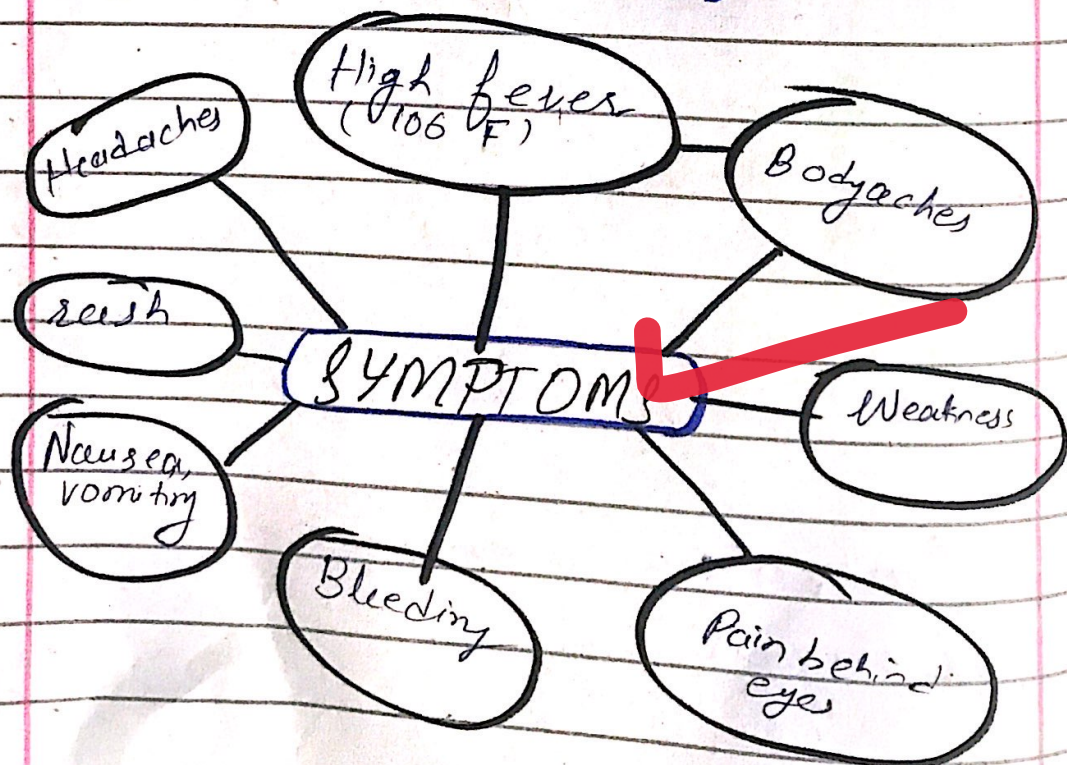 High fever
(106 F)
Headaches
Bodyaches
rash
SYMPTOMS
Weakness
Nausea,
vomiting
Bleeding
Pain behind
eyes